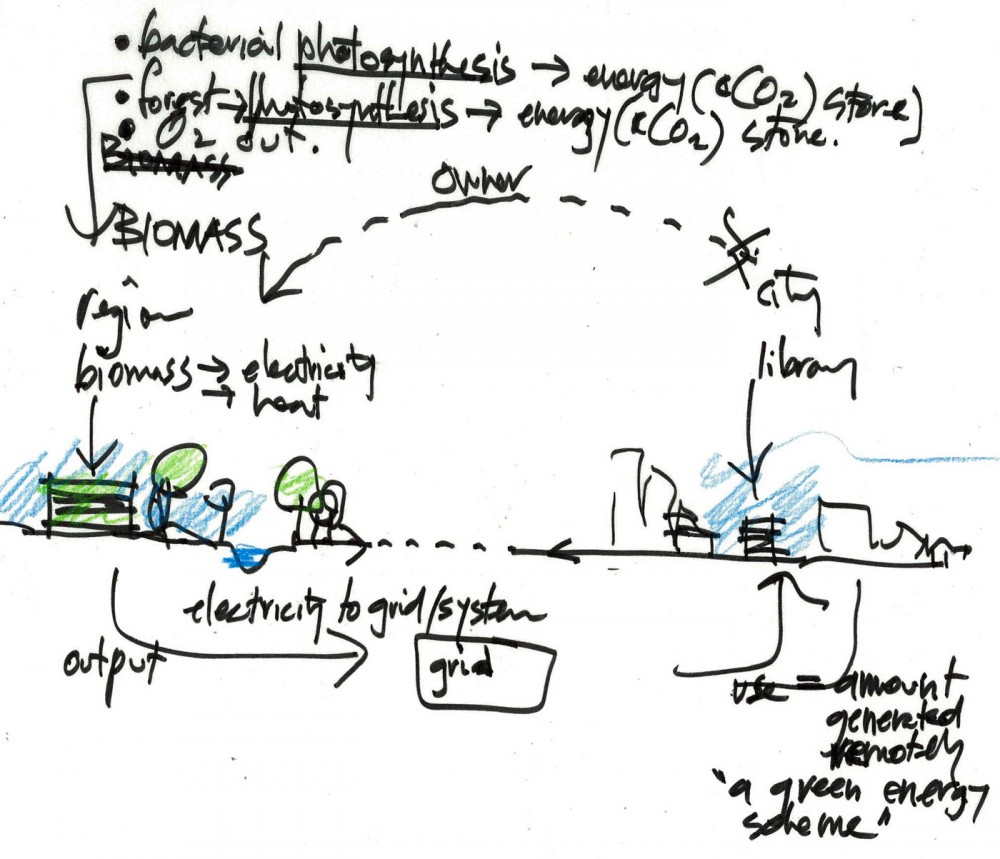 • bacterial photosynthesis → energy (&CO2) store]
• forest → photosynthesis → energy (&CO2) store.
• O2 out.
BIOMASS
owner
BIOMASS
city
region
library
biomass → electricity
→ heat
electricity to grid/system
output
grid
use = amount
generated
remotely
"a green energy
scheme"